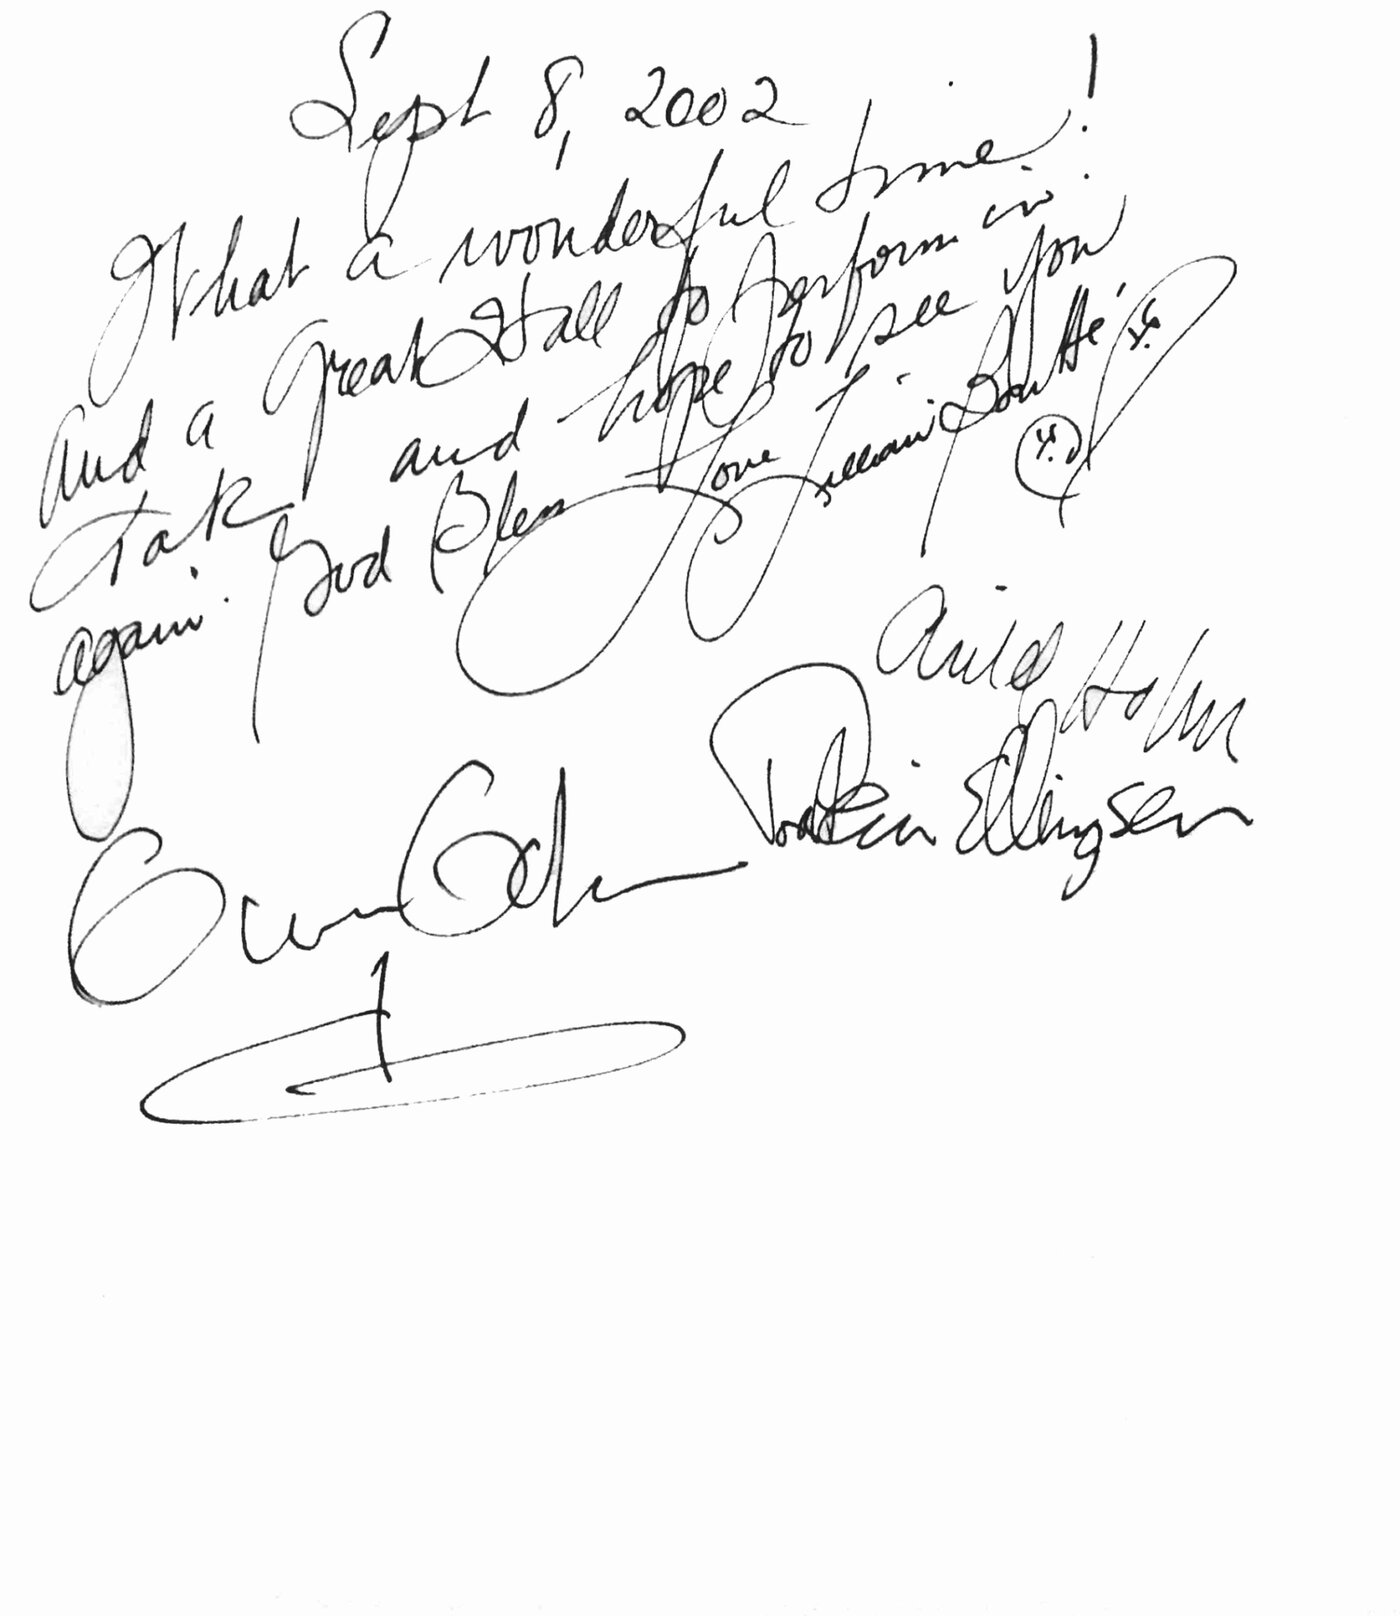 Sept 8, 2002
What a wonderful time!
And a great Hall to perform in.
Takk and hope to see you
again. God Bless Love Lillian Boutté
Arild Holm
Torstein Ellingsen